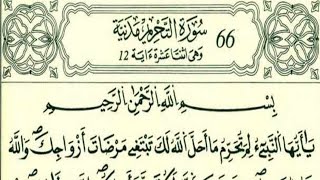 سُورَةُ التَّحْرِيمِ مَدَنِيَّة 66
وَهِيَ اثْنَتَا عَشْرَةَ ءَايَة 12
بِسْمِ اللَّهِ الرَّحْمَٰنِ الرَّحِيمِ
يَٰأَيُّهَا النَّبِيُّ لِمَ تُحَرِّمُ مَا أَحَلَّ اللَّهُ لَكَ تَبْتَغِي مَرْضَاتَ أَزْوَاجِكَ وَاللَّهُ